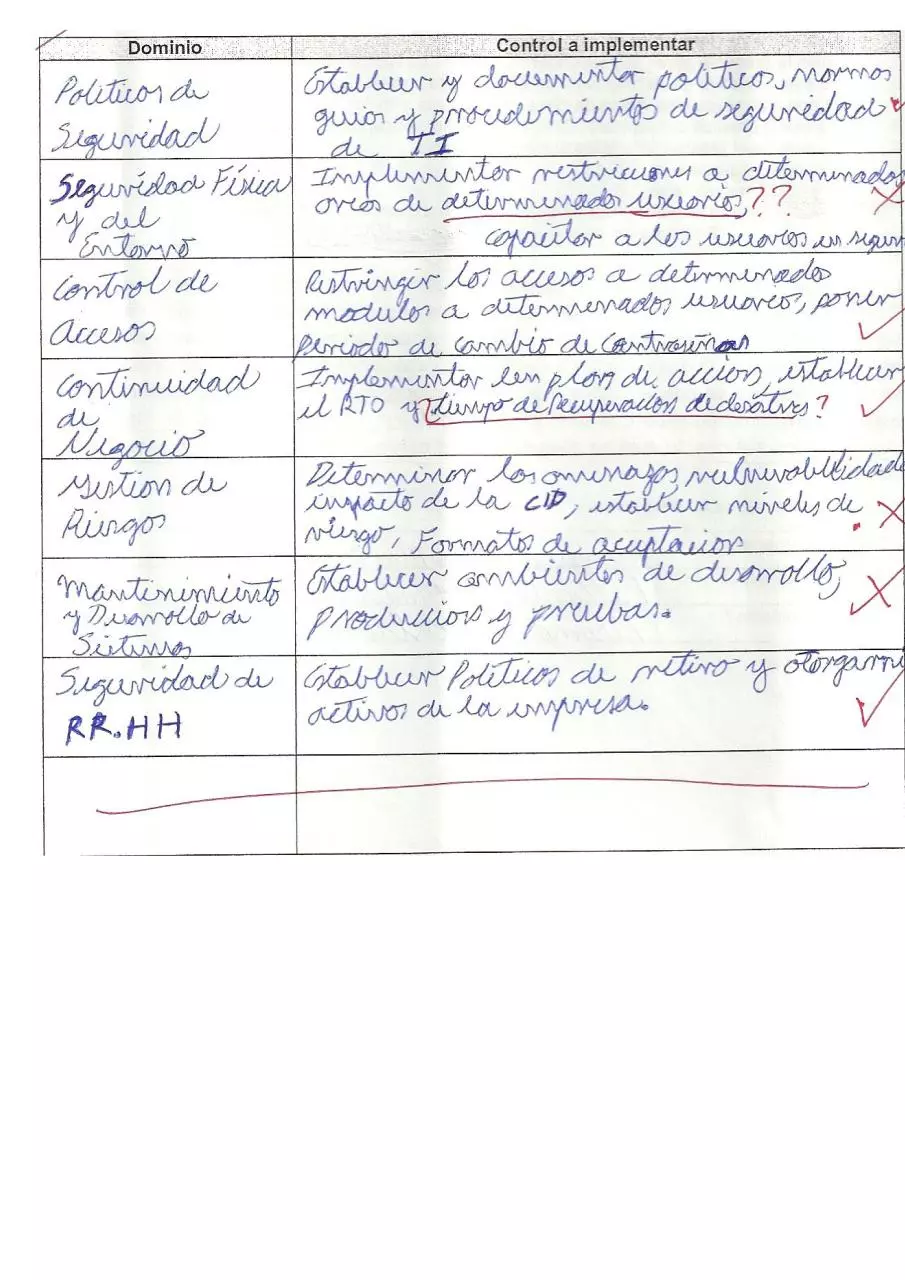 Dominio
Control a implementar
Políticas de
Seguridad
Establecer y documentar políticas, normas
guias y procedimientos de seguridad
de TI
Seguridad Física
y del
Entorno
Implementar restricciones a determinadas
areas de determinados usuarios, ??
capacitar a los usuarios en segur
Control de
Accesos
Restringir los accesos a determinados
modulos a determinados usuarios, poner
periodo de cambio de contraseñas
Continuidad
de
Negocio
Implementar un plan de acción, establecer
el RTO y tiempo de recuperación de desastres ?
Gestion de
Riesgos
Determinar las amenazas, vulnerabilidade
impacto de la CID, establecer niveles de
riesgo, Formatos de aceptacion
Mantenimiento
y Desarrollo de
Sistemas
Establecer ambientes de desarrollo,
produccion y pruebas.
Seguridad de
RR.HH
Establecer Políticas de retiro y
activos de la empresa.